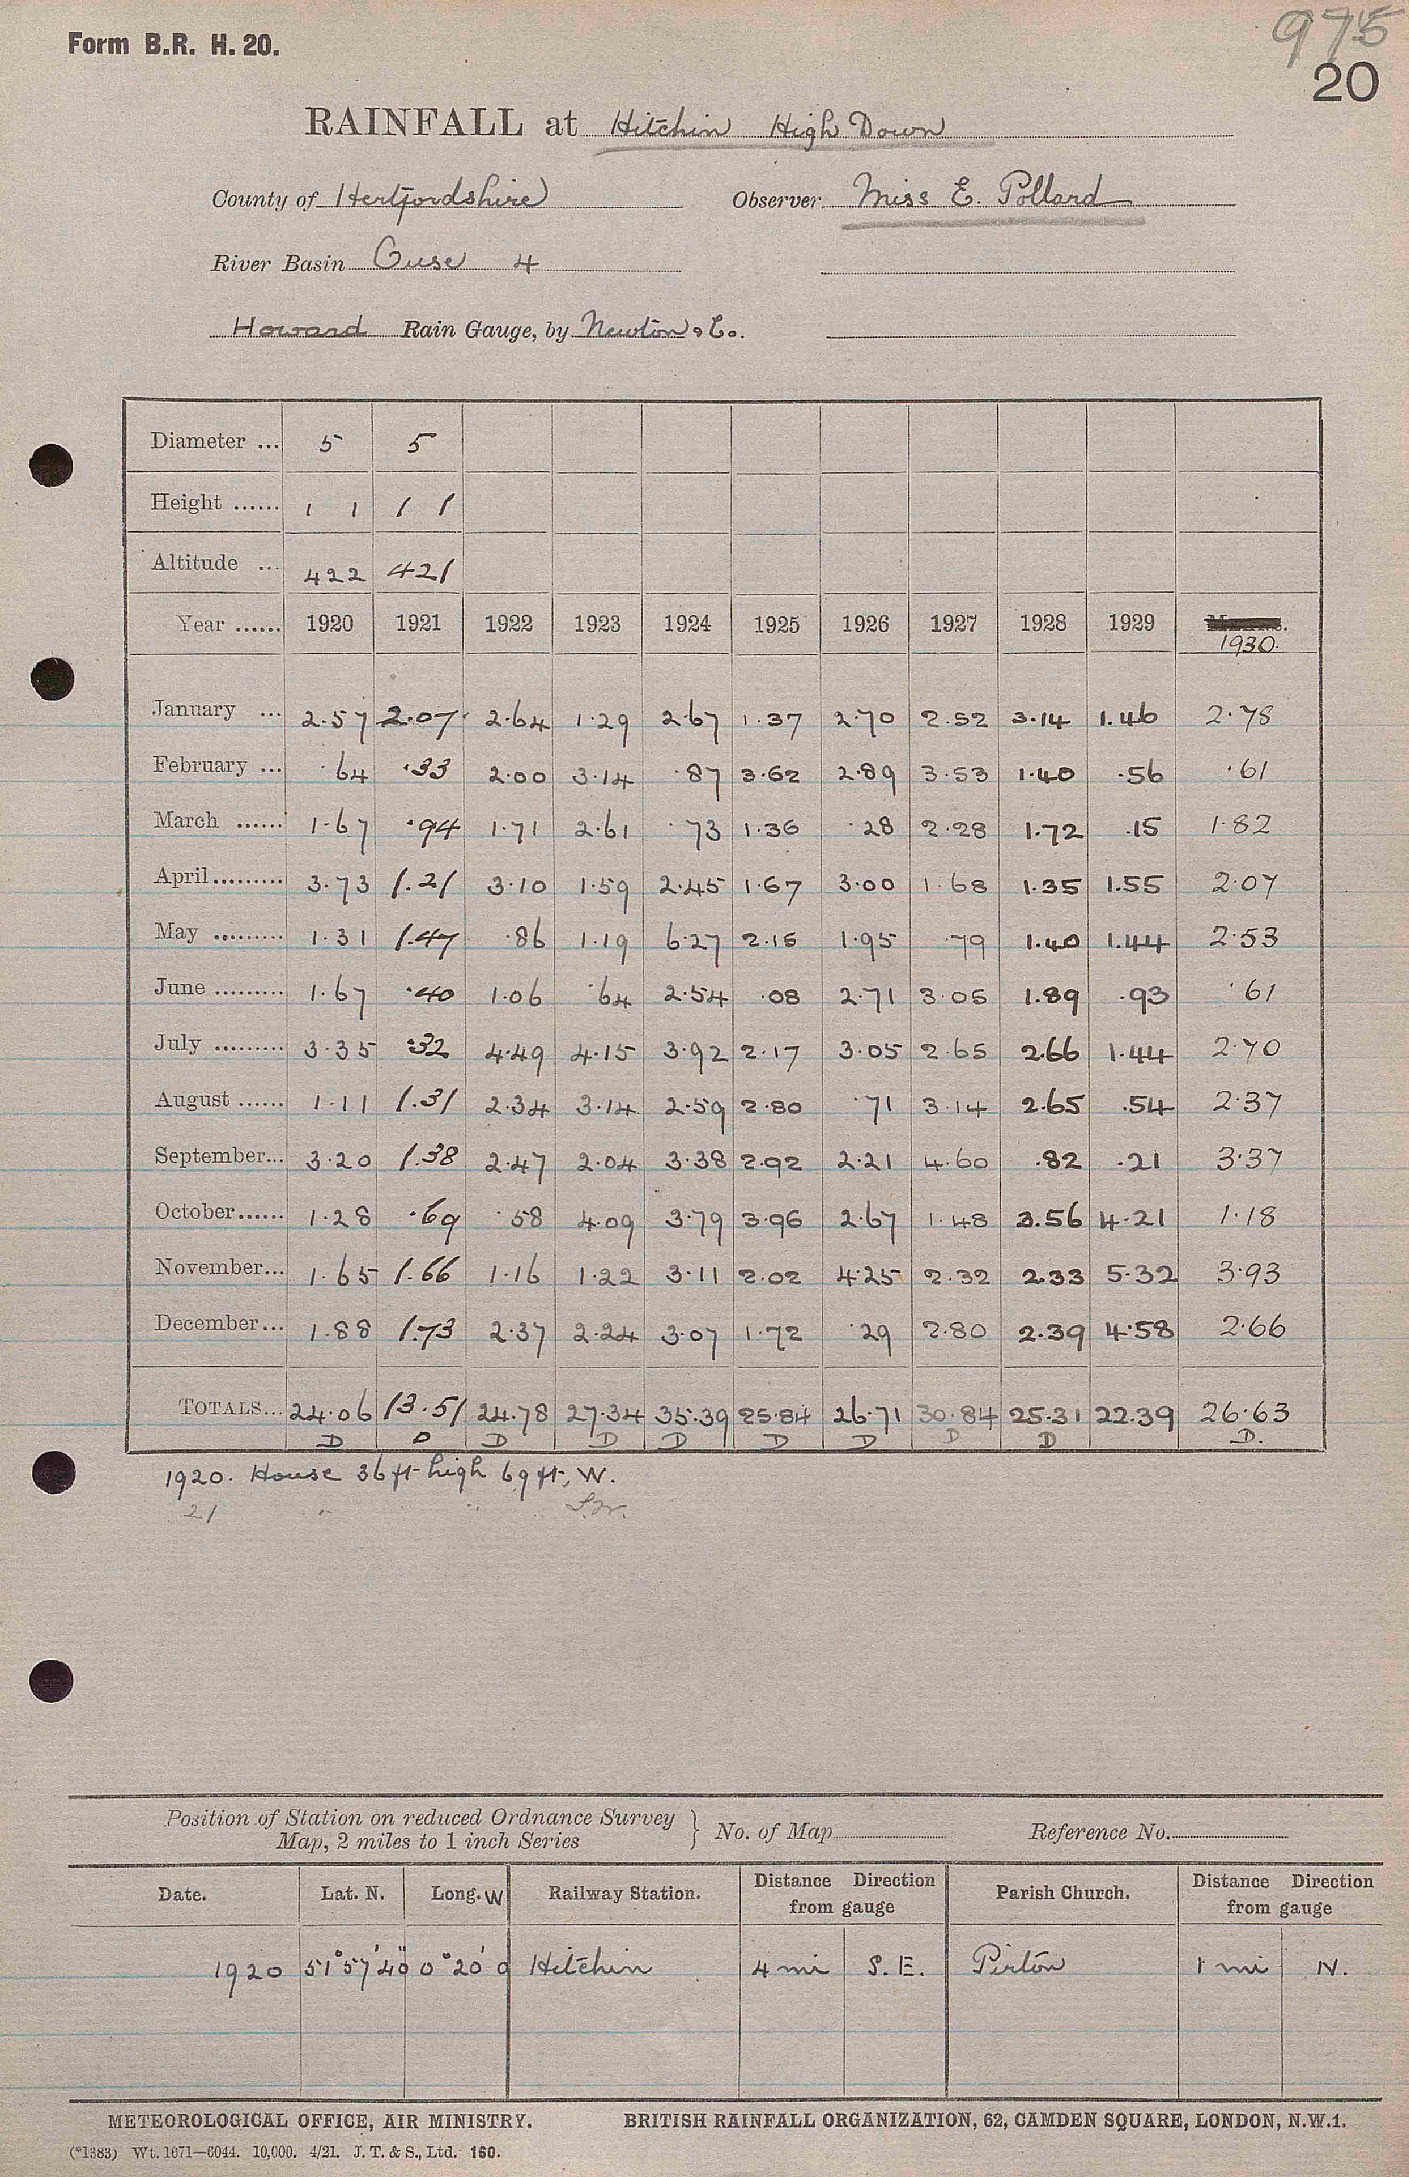 Form B.R. H. 20.
975
20
RAINFALL at Hitchin High Down
County of Hertfordshire Observer Miss E. Pollard
River Basin Ouse 4
Howard Rain Gauge, by Newton & Co.
Diameter ... 5 5
Height ...... 1 1 1 1
Altitude ... 422 421
Year ...... 1920 1921 1922 1923 1924 1925 1926 1927 1928 1929 1930.
January ... 2.57 2.07 2.64 1.29 2.67 1.37 2.70 2.52 3.14 1.46 2.78
February ... .64 .33 2.00 3.14 .87 3.62 2.89 3.53 1.40 .56 .61
March ...... 1.67 .94 1.71 2.61 .73 1.36 .28 2.28 1.72 .15 1.82
April......... 3.73 1.21 3.10 1.59 2.45 1.67 3.00 1.68 1.35 1.55 2.07
May ......... 1.31 1.47 .86 1.19 6.27 2.15 1.95 .79 1.40 1.44 2.53
June ......... 1.67 .40 1.06 .64 2.54 .08 2.71 3.05 1.89 .93 .61
July ......... 3.35 .32 4.49 4.15 3.92 2.17 3.05 2.65 2.66 1.44 2.70
August ...... 1.11 1.31 2.34 3.14 2.59 2.80 .71 3.14 2.65 .54 2.37
September... 3.20 1.38 2.47 2.04 3.38 2.92 2.21 4.60 .82 .21 3.37
October...... 1.28 .69 .58 4.09 3.79 3.96 2.67 1.48 3.56 4.21 1.18
November... 1.65 1.66 1.16 1.22 3.11 2.02 4.25 2.32 2.33 5.32 3.93
December... 1.88 1.73 2.37 2.24 3.07 1.72 .29 2.80 2.39 4.58 2.66
TOTALS... 24.06 13.51 24.78 27.34 35.39 25.84 26.71 30.84 25.31 22.39 26.63
D D D D D D D D D D.
1920. House 36 ft high 69 ft, W.
21 " " S.W.
Position of Station on reduced Ordnance Survey
Map, 2 miles to 1 inch Series } No. of Map Reference No.
Date. Lat. N. Long. W Railway Station. Distance Direction from gauge Parish Church. Distance Direction from gauge
1920 51°57'40" 0°20'0 Hitchin 4 mi S.E. Pirton 1 mi N.
METEOROLOGICAL OFFICE, AIR MINISTRY. BRITISH RAINFALL ORGANIZATION, 62, CAMDEN SQUARE, LONDON, N.W.1.
(*1383) Wt. 1071—6044. 10,000. 4/21. J. T. & S., Ltd. 160.